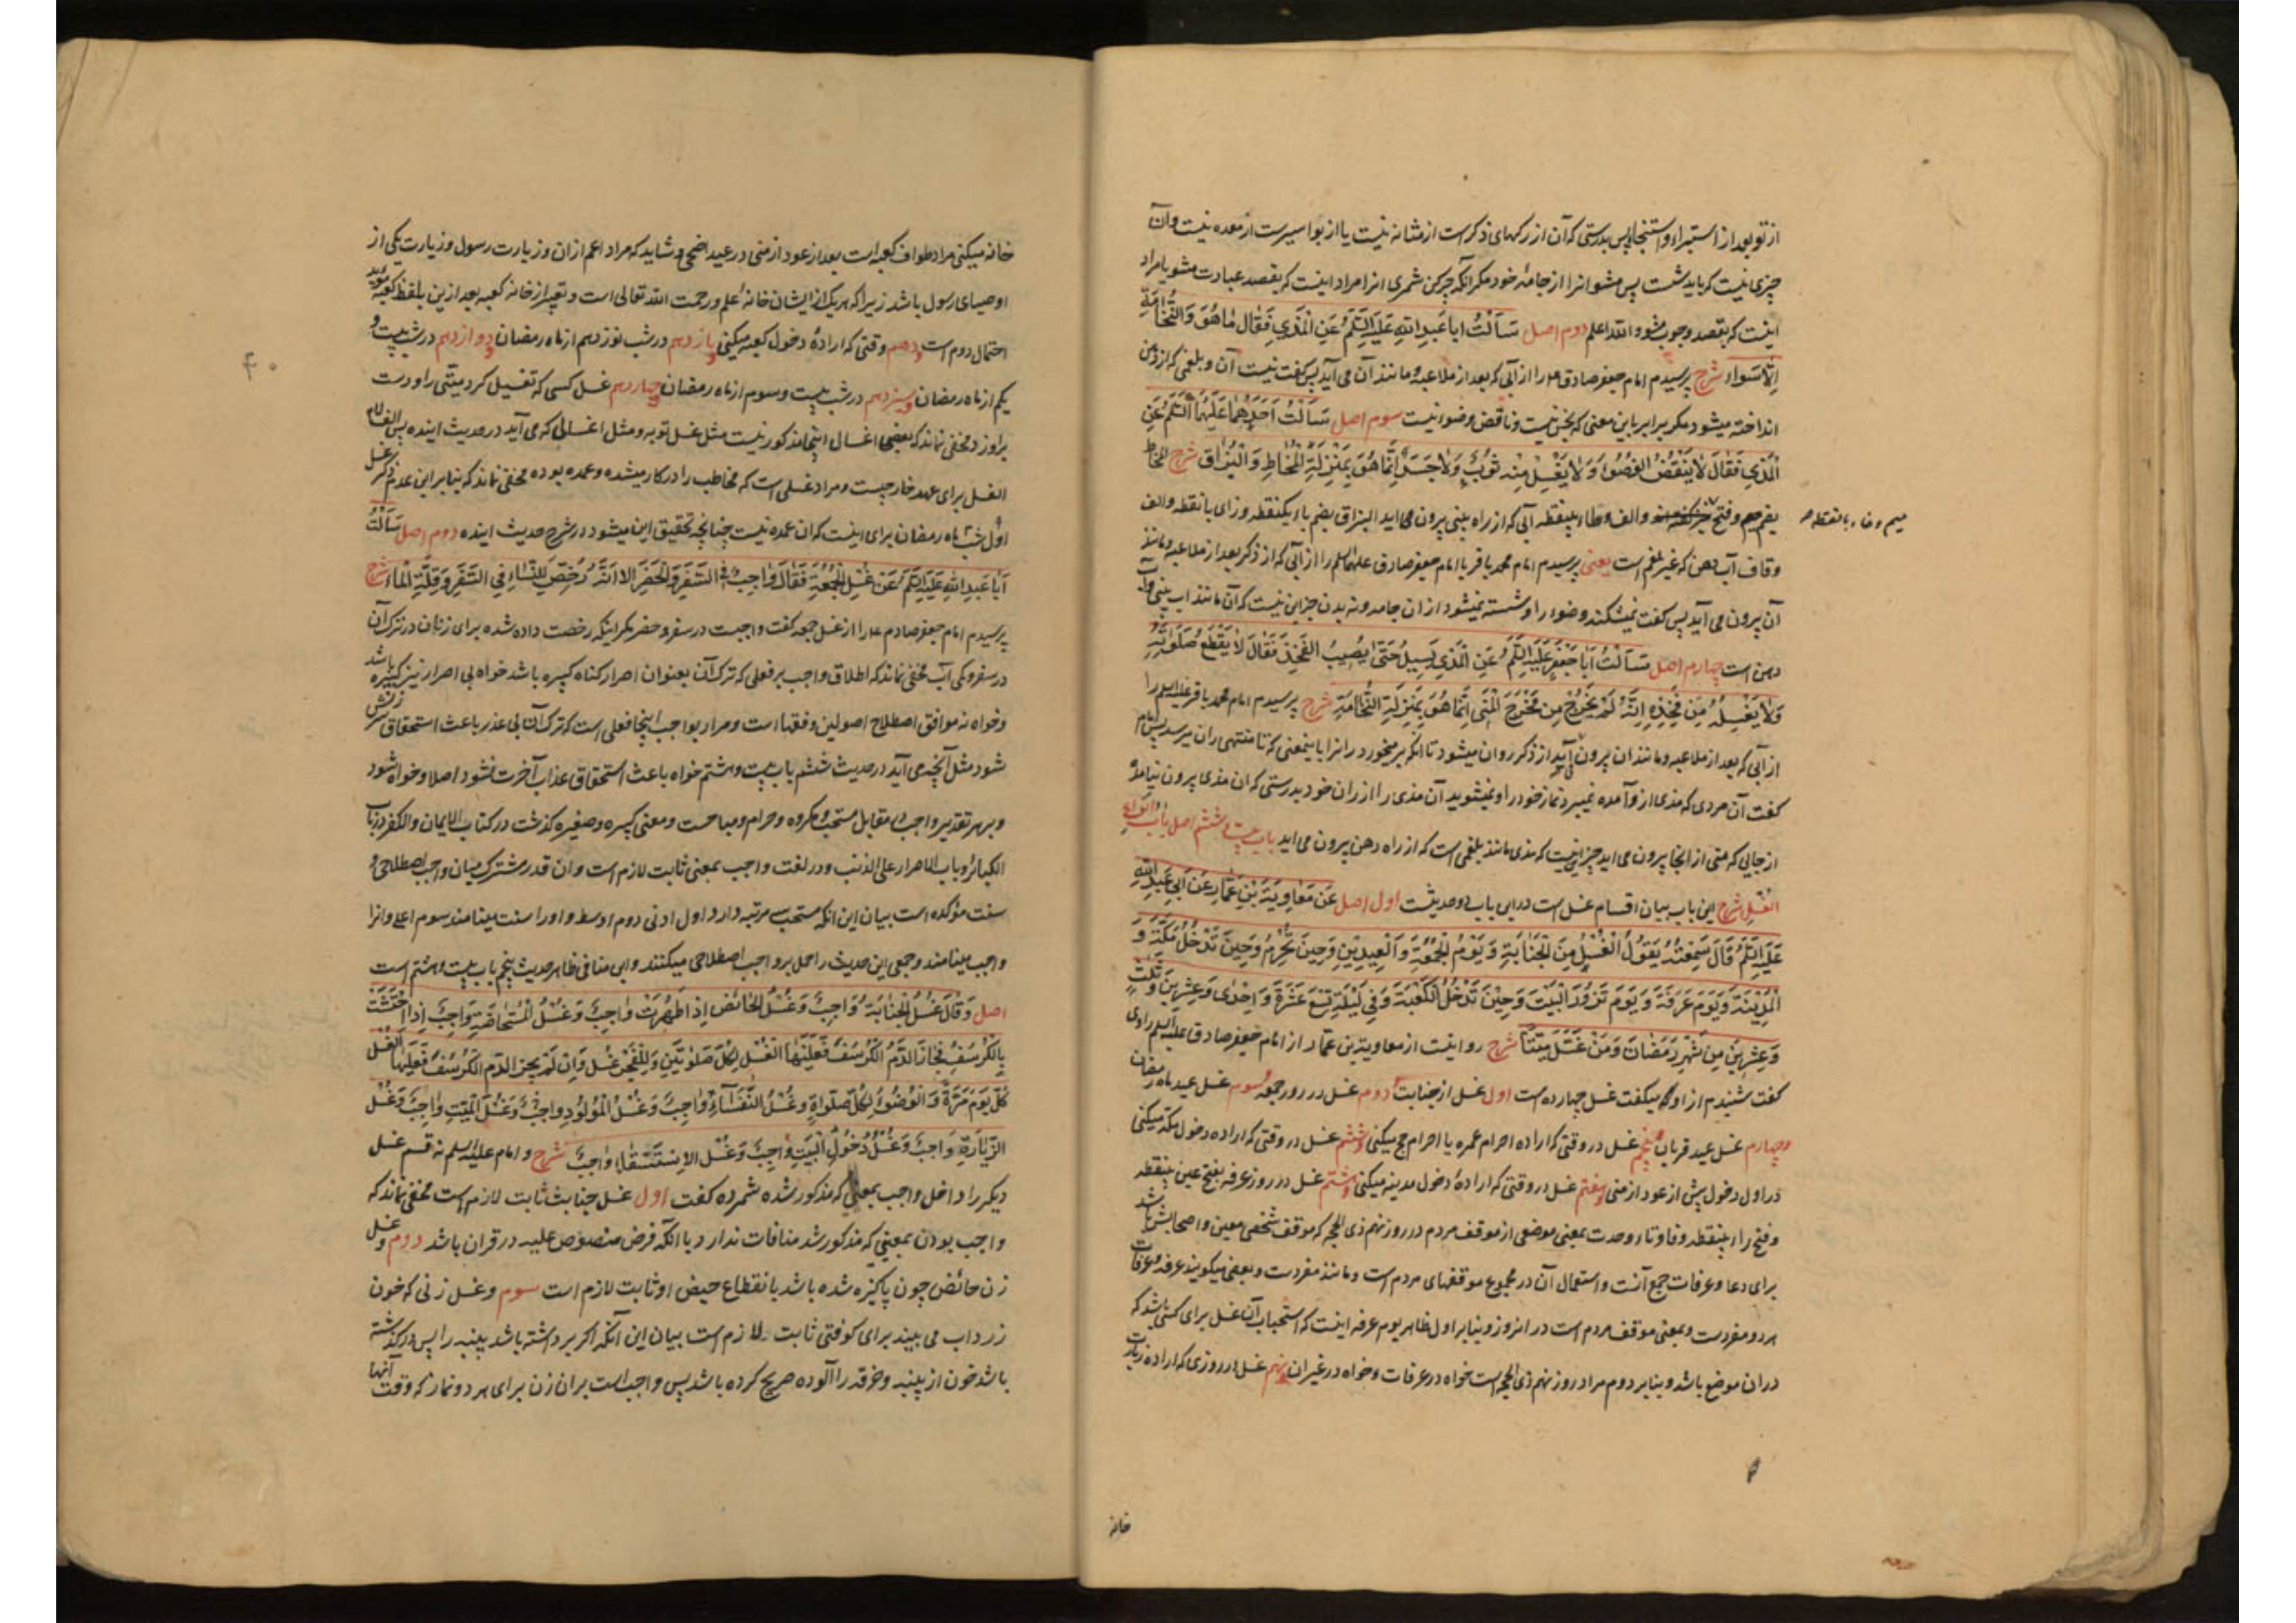 از تو بعد از استبراء و استنجا پس بدرستی که آن از رکهای ذکر است از مثانه نیست یا از بواسیر است از معده نیست و آن
چیزی نیست که باید شست پس مشو انرا از جامهٔ خود مکر انکه چرکن شمری انرا مراد اینست که بقصد عبادت مشو یا مراد
اینست که بقصد وجوب مشو و الله اعلم دوم اصل سَاَلْتُ ابا عَبدِ اللهِ عَلَیهِ السَّلَمُ عَنِ الْمَذِي فَقٰالَ مٰا هُوَ وَ النُّخٰامَةِ
اِلّا سَوٰاء شرح پرسیدم امام جعفر صادق ع م را از آبی که بعد از ملاعبه و مانند آن می آید پس کفت نیست آن و بلغمی که از دهن
انداخته میشود مکر برابر باین معنی که نجس نیست و ناقض وضو نیست سوم اصل سَاَلْتُ اَحَدَهُمٰا عَلَیْهِمَا السَّلَمُ عَنِ
الْمَذِي فَقٰالَ لٰا یَنْقُضُ الوُضُوءَ وَ لٰا یُغْسَلُ مِنْه ثَوْبٌ وَ لٰا جَسَدٌ اِنَّمٰا هُوَ بِمَنْزِلَةِ الْمُخٰاطِ وَ الْبُزٰاقِ شرح المخاط
بضم میم و فتح والف و طاء بینقطه آبی که از راه بینی بیرون می اید البزاق بضم باء یکنقطه و زای با نقطه و الف
میم و خاء با نقطه
و قاف آب دهن که غیر بلغم است یعنی پرسیدم امام محمد باقر یا امام جعفر صادق علیهما السلم را از آبی که از ذکر بعد از ملاعبه و مانند
آن بیرون می آید پس کفت نمیشکند وضو را و شسته نمیشود از ان جامه و نه بدن جز این نیست که آن مانند اب بینی و آب
دهن است چهارم اصل سَاَلْتُ اَبٰا جَعْفَرٍ عَلَیهِ السَّلَمُ عَنِ الْمَذِي یَسِیلُ حَتّٰی یُصِیبُ الفَخِذَ فَقٰالَ لٰا یَقْطَعُ صَلٰوتَهُ
وَ لٰا یَغْسِلُهُ مِن فَخِذِهِ اِنَّهُ لَمْ یَخْرُجْ مِن مَخْرَجِ الْمَنِی اِنَّمٰا هُوَ بِمَنْزِلَةِ النُّخٰامَةِ شرح پرسیدم امام محمد باقر علیه السلم را
از آبی که بعد از ملاعبه و مانند ان بیرون می آید از ذکر روان میشود تا انکه بر میخورد رانرا باینمعنی که تا منتهی ران میرسد پس امام
کفت آن مردی که مذی از و آمده نمیبرد نماز خود را و نمیشوید آن مذی را از ران خود بدرستی که ان مذی بیرون نیامده
از جایی که منی از انجا بیرون می اید جز این نیست که مذی مانند بلغمی است که از راه دهن بیرون می اید باب بیست و ششم اصل بابُ انْوٰاعِ
الغُسْلِ شرح این باب بیان اقسام غسل است در این باب دو حدیثست اول اصل عَن مُعٰاوِیَةَ بْنِ عَمّٰارٍ عَن اَبي عَبْدِ اللهِ
عَلَیهِ السَّلَمُ قَالَ سَمِعْتُهُ یَقُولُ الْغُسْلُ مِنَ الْجَنٰابَةِ وَ یَوْمَ الْجُمُعَةِ وَ الْعِیدَیْنِ وَ حِینَ تُحْرِمُ وَ حِینَ تَدْخُلُ مَکَّةَ وَ
الْمَدِینَةَ وَ یَوْمَ عَرَفَةَ وَ یَوْمَ تَزُورُ الْبَیْتَ وَ حِیْنَ تَدْخُلُ الْکَعْبَةَ وَ فِي لَیْلَةِ تِسْعَ عَشْرَةَ وَ اِحْدٰی وَ عِشْرِینَ وَ ثَلٰثٍ
وَ عِشْرِینَ مِن شَهْرِ رَمَضٰانَ وَ مَنْ غَسَّلَ مَیِّتاً شرح روایتست از معاویة بن عمّار از امام جعفر صادق علیه السلم راوی
کفت شنیدم از او که میکفت غسل چهارده است اول غسل از جنابت دوم غسل در روز جمعه سوم غسل عید ماه رمضان
و چهارم غسل عید قربان پنجم غسل در وقتی که اراده احرام عمره یا احرام حج میکنی و ششم غسل در وقتی که اراده دخول مکه میکنی
در اول دخول پیش از عود از منی و هفتم غسل در وقتی که ارادهٔ دخول مدینه میکنی و هشتم غسل در روز عرفه بفتح عین بینقطه
و فتح راء بینقطه و فا و تاء وحدت بمعنی موضعی از موقف مردم در روز نهم ذی الحجه که موقف شخصی معین و اصحابش باشد
برای دعا و عرفات جمع آنست و استعمال آن در مجموع موقفهای مردم است و مانند مفردست و بعضی میکویند عرفه و عرفات
هر دو مفردست و بمعنی موقف مردم است در انروز و بنابر اول ظاهر یوم عرفه اینست که استحباب آن غسل برای کسی باشد که
در ان موضع باشد و بنابر دوم مراد روز نهم ذی الحجه است خواه در عرفات و خواه در غیر ان و نهم غسل در روزی که اراده زیارت
خانه
خانه میکنی مراد طواف کعبه است بعد از عود از منی در عید اضحی و شاید که مراد اعم از ان و زیارت رسول و زیارت یکی از
اوصیای رسول باشد زیرا که هر یک از ایشان خانه اعلم و رحمت الله تعالی است و تعبیر از خانه کعبه بعد ازین بلفظ کعبه مؤید
احتمال دوم است و دهم وقتی که ارادهٔ دخول کعبه میکنی و یازدهم در شب نوزدهم از ماه رمضان و دوازدهم در شب بیست و
یکم از ماه رمضان و سیزدهم در شب بیست و سوم از ماه رمضان و چهاردهم غسل کسی که تغسیل کرد میّتی را و دست
براوزد و مخفی نماند که بعضی اغسال اینجا مذکور نیست مثل غسل توبه و مثل اغسالی که می آید در حدیث اینده پس الف لام
الغسل برای عهد خارجیست و مراد غسلی است که مخاطب را در کار میشده و عمده بوده مخفی نماند که بنابر این عدم ذکر غسل
اول شب ماه رمضان برای اینست که ان عمده نیست چنانچه تحقیق این میشود در شرح حدیث اینده دوم اصل سَاَلْتُ
اَبٰا عَبدِ اللهِ عَلَیهِ السَّلَمُ عَن غُسْلِ الْجُمُعَةِ فَقٰالَ وٰاجِبٌ فِي السَّفَرِ وَ الْحَضَرِ اِلّا اَنَّهُ رُخِّصَ لِلنِّسٰاءِ فِي السَّفَرِ وَ قِلَّةِ الْمٰاءِ شرح
پرسیدم امام جعفر صادق ع م را از غسل جمعه کفت واجبست در سفر و حضر مکر اینکه رخصت داده شده برای زنان در ترک آن
در سفر و کمی آب مخفی نماند که اطلاق واجب بر فعلی که ترک آن بعنوان اصرار کناه کبیره باشد خواه بی اصرار نیز کبیره باشد
و خواه نه موافق اصطلاح اصولین و فقها است و مراد بواجب اینجا فعلی است که ترک آن بی عذر باعث استحقاق سرزنش
شود مثل آنچه می آید در حدیث ششم باب بیست و هشتم خواه باعث استحقاق عذاب آخرت نشود اصلا و خواه شود
و بر هر تقدیر واجب مقابل مستحب و مکروه و حرام و مباحست و معنی کبیره و صغیره کذشت در کتاب الایمان و الکفر در باب
الکبائر و باب الاصرار علی الذنب و در لغت واجب بمعنی ثابت لازم است و ان قدر مشترک میان واجب اصطلاحی و
سنت مؤکده است بیان این انکه مستحب سه مرتبه دارد اول ادنی دوم اوسط و اورا سنت مینامند سوم اعلی و انرا
واجب مینامند و جمعی این حدیث را حمل بر واجب اصطلاحی میکنند و این منافی ظاهر حدیث پنجم باب بیست و هشتم است
اصل وَ قٰالَ غُسْلُ الْجَنٰابَةِ وٰاجِبٌ وَ غُسْلُ الْحٰائِضِ اِذٰا طَهُرَتْ وٰاجِبٌ وَ غُسْلُ الْمُسْتَحٰاضَةِ وٰاجِبٌ اِذٰا احْتَشَتْ
بِالْکُرْسُفِ فَجٰازَ الدَّمُ الْکُرْسُفَ فَعَلَیْهَا الْغُسْلُ لِکُلِّ صَلٰوتَیْنِ وَ لِلْفَجْرِ غُسْلٌ وَ اِن لَمْ یَجُزِ الدَّمُ الْکُرْسُفَ فَعَلَیْهَا الْغُسْلُ
کُلَّ یَوْمٍ مَرَّةً وَ الْوُضُوءُ لِکُلِّ صَلٰوةٍ وَ غُسْلُ النُّفَسٰاءِ وٰاجِبٌ وَ غُسْلُ الْمَوْلُودِ وٰاجِبٌ وَ غُسْلُ الْمَیِّتِ وٰاجِبٌ وَ غُسْلُ
الزِّیٰارَةِ وٰاجِبٌ وَ غُسْلُ دُخُولِ الْبَیْتِ وٰاجِبٌ وَ غُسْلُ الاِسْتِسْقٰاءِ وٰاجِبٌ شرح و امام علیه السلم نه قسم غسل
دیکر را داخل واجب بمعنی که مذکور شده شمرده کفت اول غسل جنابت ثابت لازم است مخفی نماند که
واجب بودن بمعنیی که مذکور شد منافات ندارد با انکه فرض منصوص علیه در قران باشد دوم و غسل
زن حائض چون پاکیزه شده باشد بانقطاع حیض او ثابت لازم است سوم و غسل زنی که خون
زرداب می بیند برای کوفتی ثابت لازم است بیان این آنکه اکر برداشته باشد پنبه را پس در کذشته
باشد خون از پنبه و خرقه را آلوده صریح کرده باشد پس واجب است بر ان زن برای هر دو نماز که وقت آنها